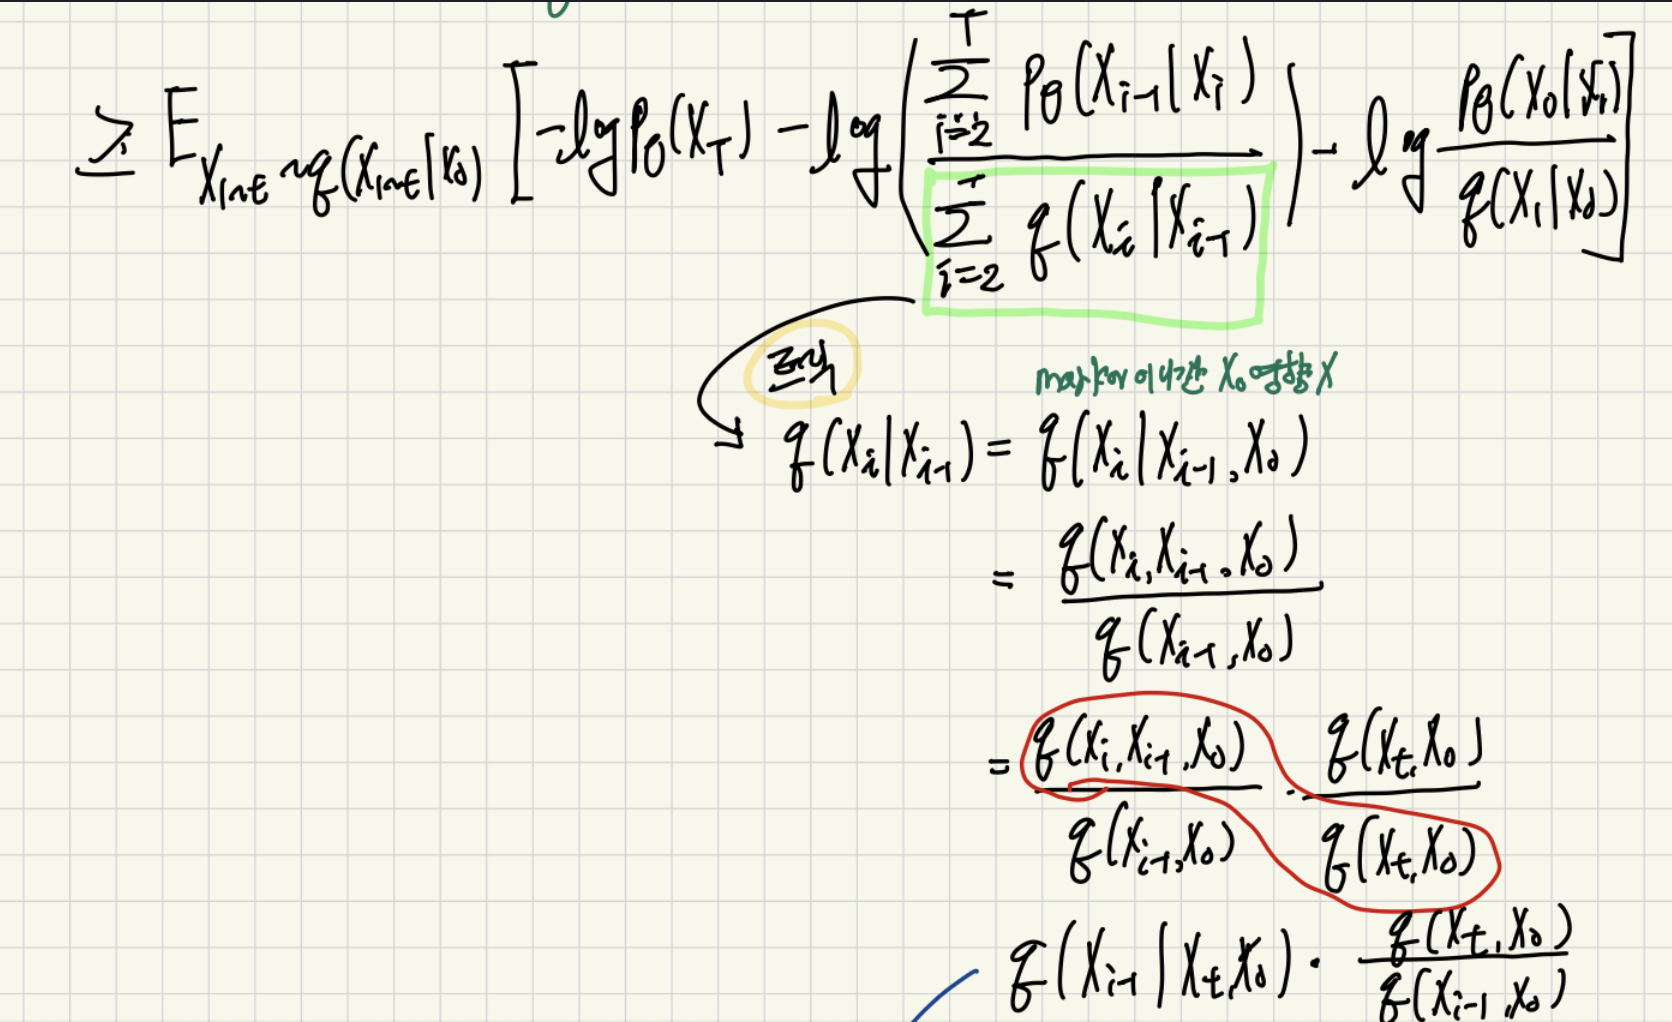 ≥ E_{X_{1:T} ~ q(X_{1:T}|X_0)} [ -log p_θ(X_T) - log( Σ_{i=2}^{T} p_θ(X_{i-1}|X_i) / Σ_{i=2}^{T} q(X_i|X_{i-1}) ) - log p_θ(X_0|X_1) / q(X_1|X_0) ]
markov 이니깐 X_0 영향 X
q(X_i|X_{i-1}) = q(X_i|X_{i-1}, X_0)
= q(X_i, X_{i-1}, X_0) / q(X_{i-1}, X_0)
= q(X_i, X_{i-1}, X_0) / q(X_{i-1}, X_0) · q(X_t, X_0) / q(X_t, X_0)
q(X_{i-1}|X_t, X_0) · q(X_t, X_0) / q(X_{i-1}, X_0)